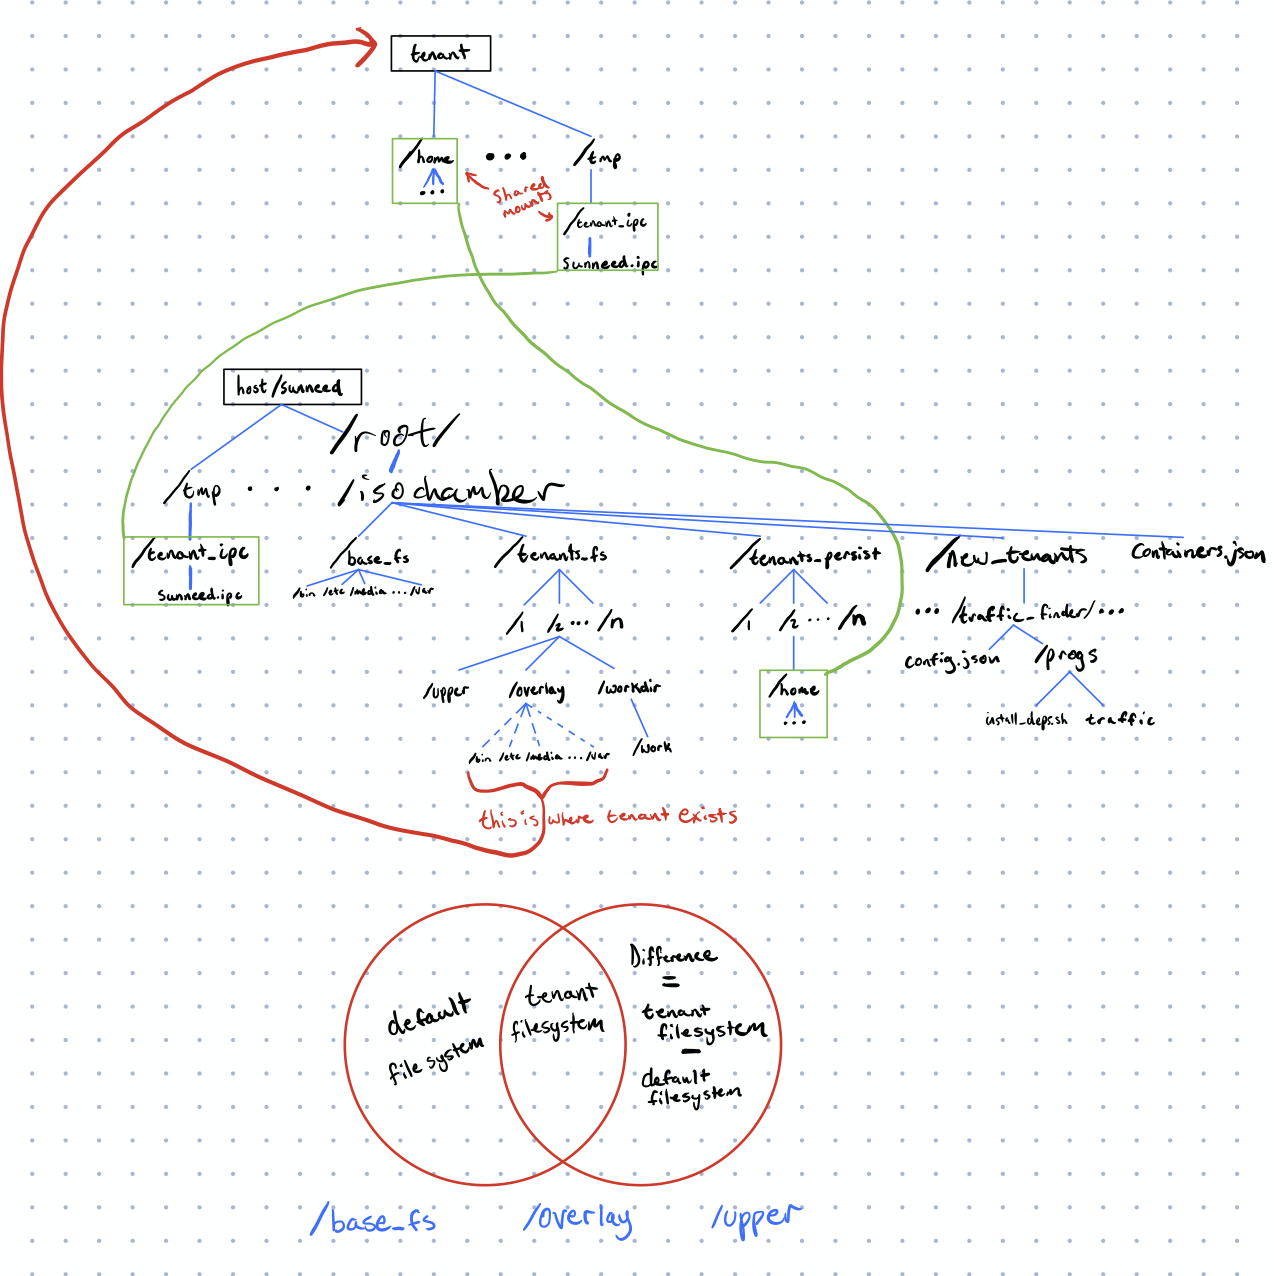 tenant
/home ... /tmp
...
Shared
mounts
/tenant_ipc
sunneed.ipc
host/sunneed
/root/
/tmp ... /isochamber
/tenant_ipc
sunneed.ipc
/base_fs
/bin /etc /media ... /var
/tenants_fs
/1 /2 ... /n
/upper /overlay /workdir
/work
/bin /etc /media ... /var
this is where tenant exists
/tenants_persist
/1 /2 ... /n
/home
...
/new_tenants
... /traffic_finder/ ...
config.json /progs
install_deps.sh traffic
Containers.json
default
file system
tenant
filesystem
Difference
=
tenant
filesystem
-
default
filesystem
/base_fs /overlay /upper